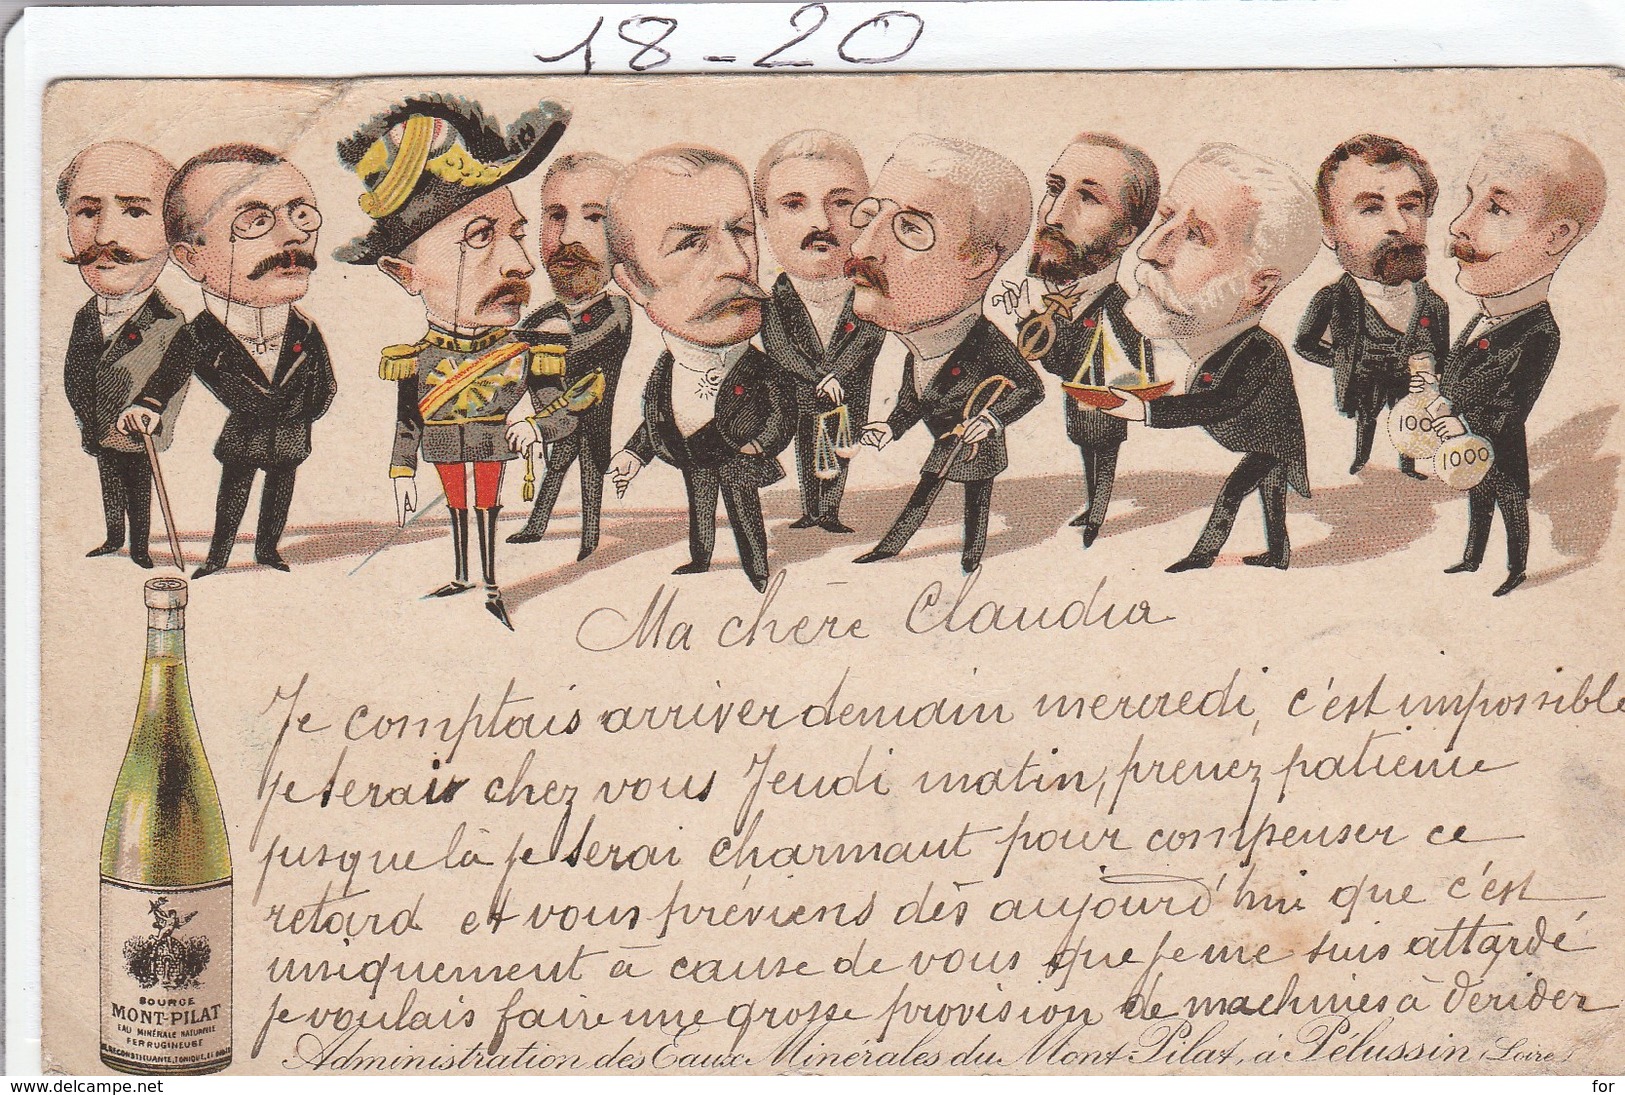 18-20
100
1000
Ma chère Claudia
Je comptais arriver demain mercredi, c'est impossible
je serais chez vous Jeudi matin, prenez patience
jusque là je serai charmant pour compenser ce
retard et vous préviens dès aujourd'hui que c'est
uniquement à cause de vous que je me suis attardé
je voulais faire une grosse provision de machines à derider
SOURCE
MONT-PILAT
EAU MINÉRALE NATURELLE
FERRUGINEUSE
RECONSTITUANTE, TONIQUE, ET
Administration des Eaux Minérales du Mont Pilat, à Pélussin (Loire)
delcampe.net
for